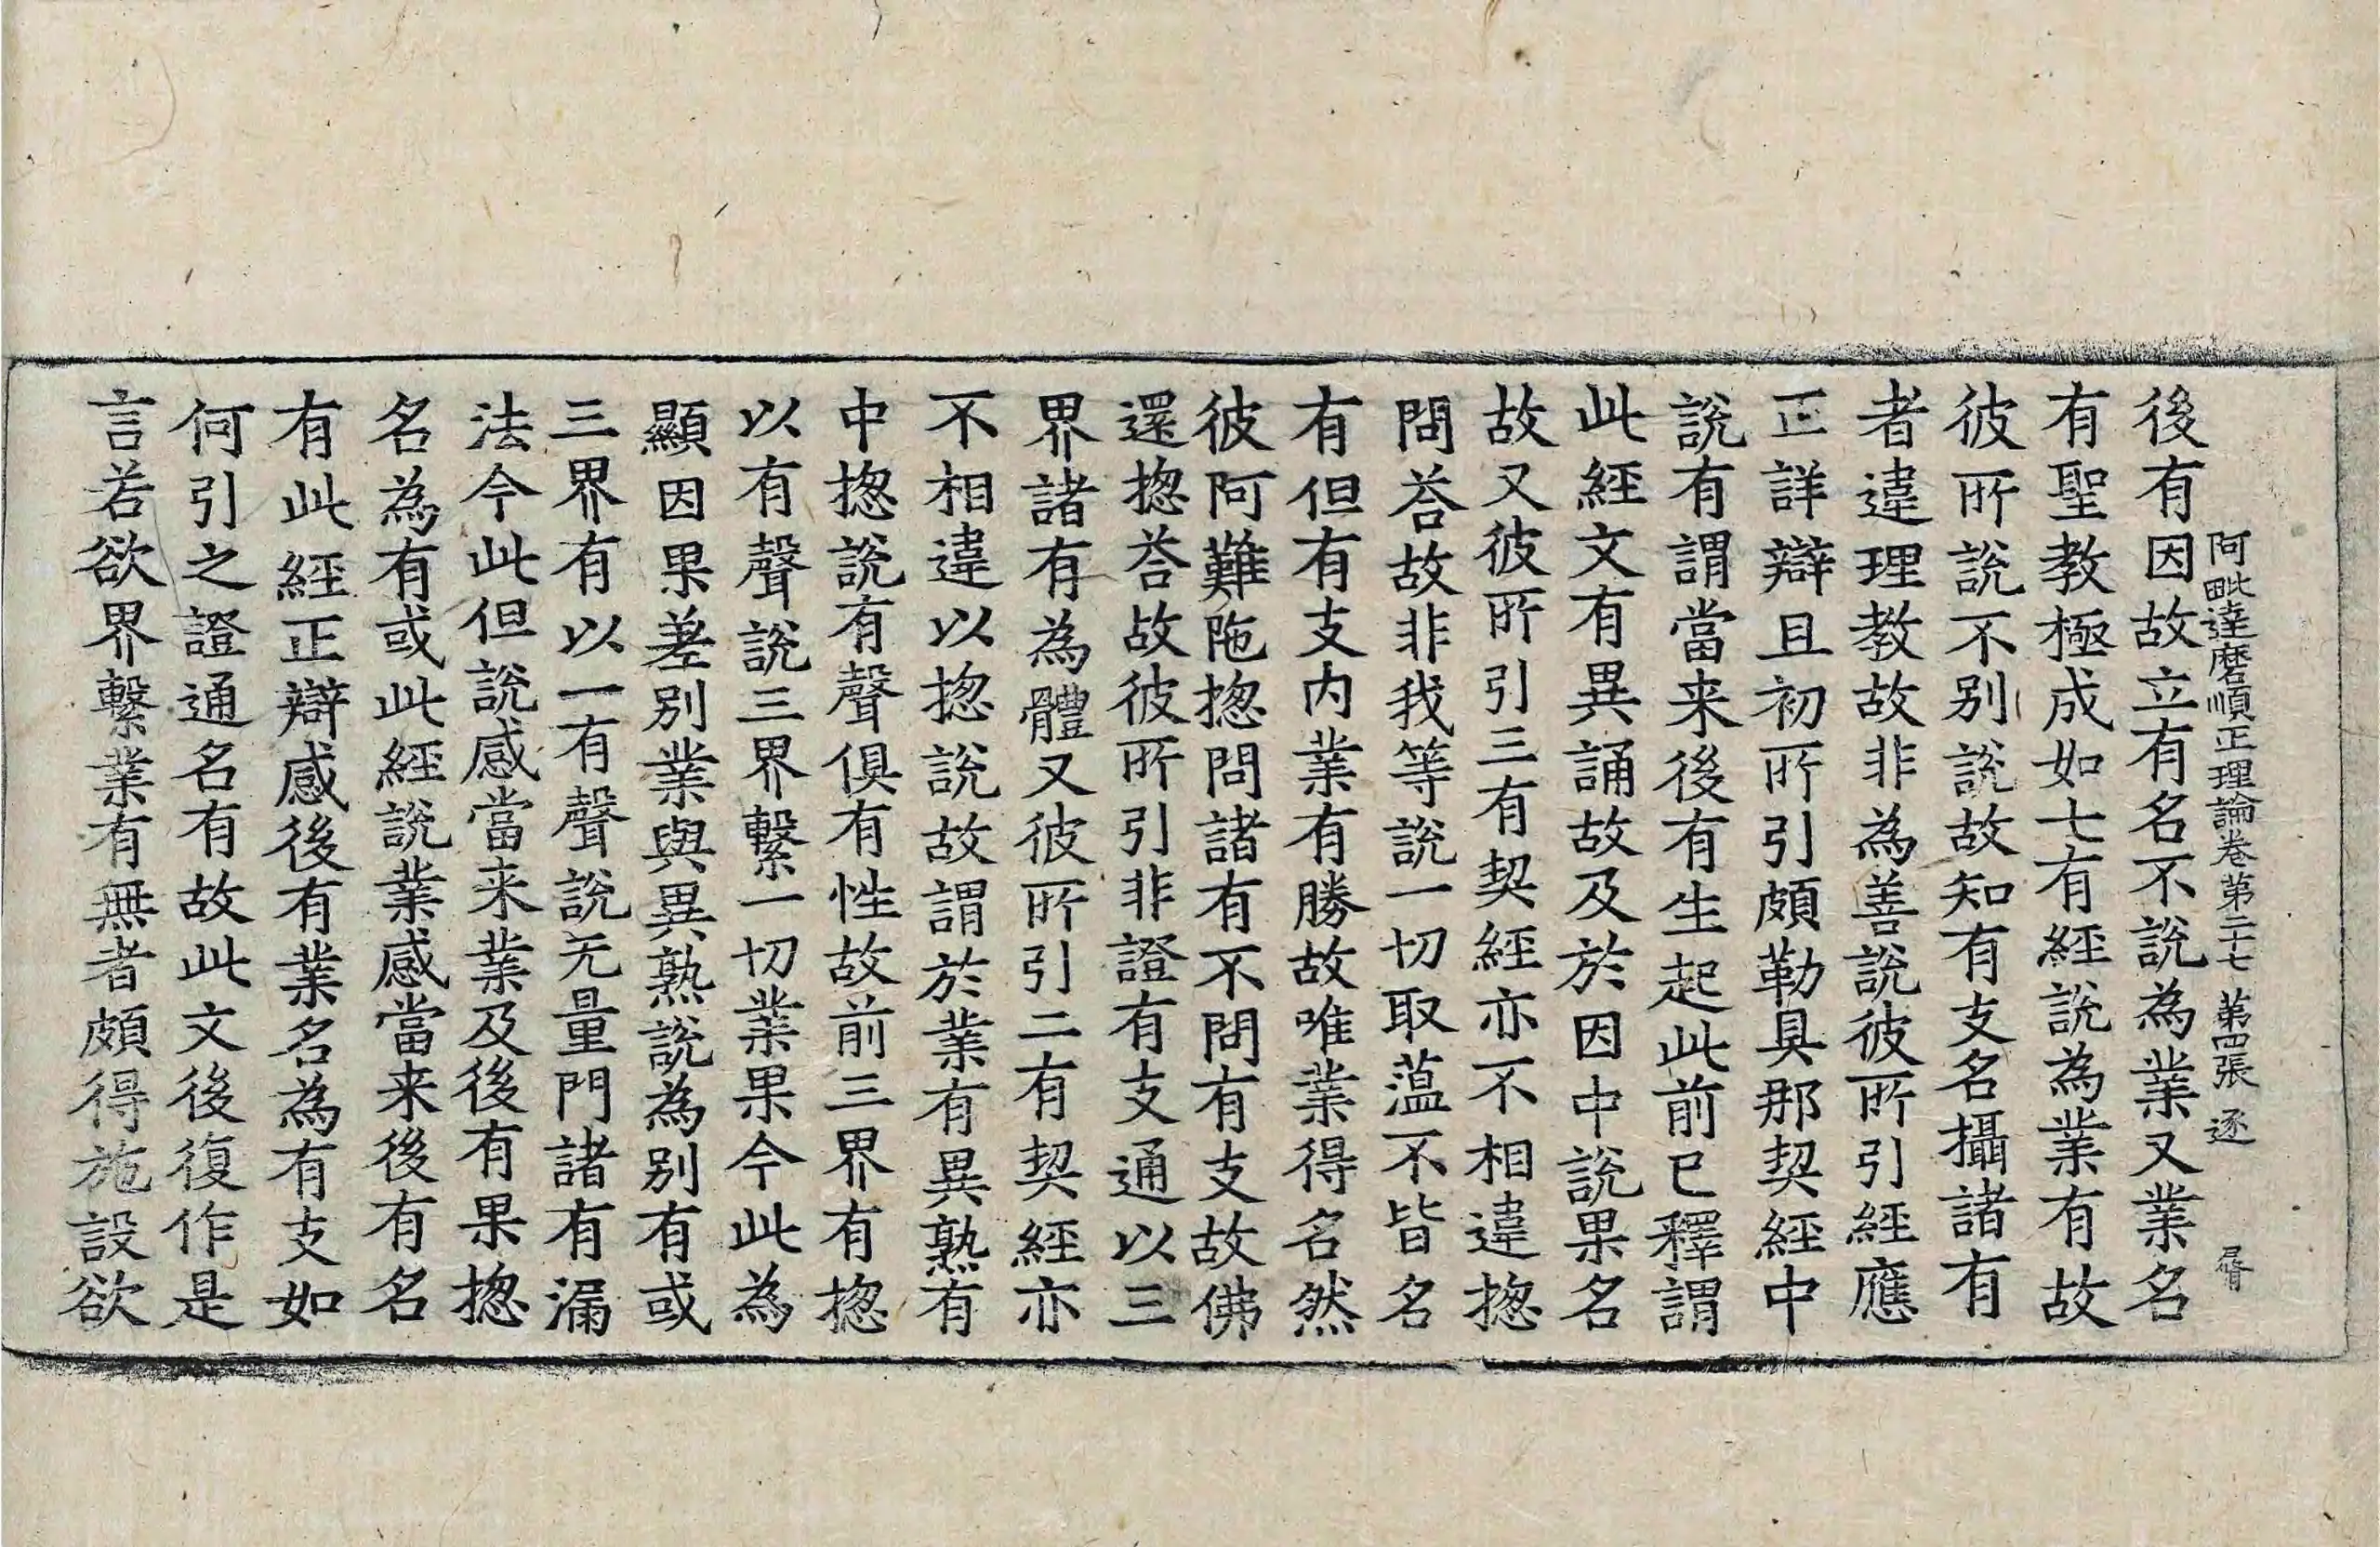 阿毗達磨順正理論卷第二十七 第四張 逐
後有因故立有名不說為業又業名
有聖教極成如七有經說為業有故
彼所說不別說故知有支名攝諸有
者違理教故非為善說彼所引經應
正詳辯且初所引頗勒具那契經中
說有謂當来後有生起此前已釋謂
此經文有異誦故及於因中說果名
故又彼所引三有契經亦不相違揔
問荅故非我等說一切取薀不皆名
有但有支内業有勝故唯業得名然
彼阿難陁揔問諸有不問有支故佛
還揔荅故彼所引非證有支通以三
界諸有為體又彼所引二有契經亦
不相違以揔說故謂於業有異熟有
中揔說有聲俱有性故前三界有揔
以有聲說三界繫一切業果今此為
顯因果差別業與異熟說為別有或
三界有以一有聲說无量門諸有漏
法今此但說感當来業及後有果揔
名為有或此經說業感當来後有名
有此經正辯感後有業名為有支如
何引之證通名有故此文後復作是
言若欲界繫業有無者頗得施設欲